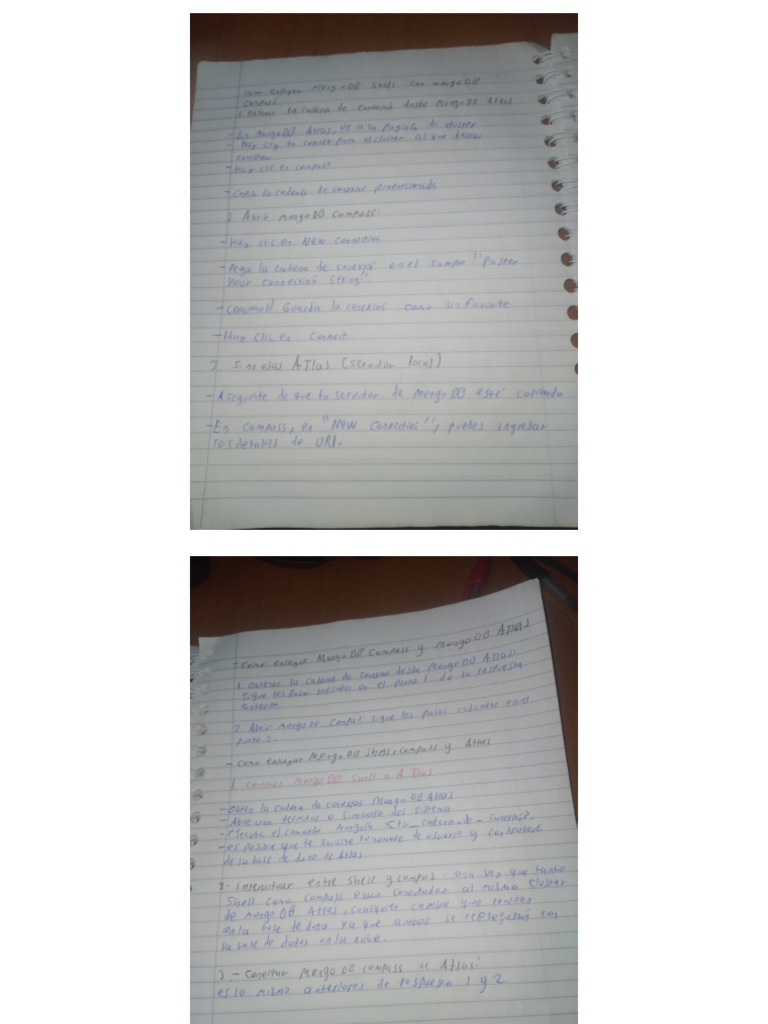 Como enlazar MongoDB Shell con mongoDB
Compass
1. Obtener la cadena de conexión desde MongoDB Atlas
- En MongoDB Atlas, ve a tu pagina de cluster
- Haz clic en connect para el cluster al que deseas
conectar
- Haz clic en compass
- Copia la cadena de conexion proporcionada
2. Abrir MongoDB Compass:
- Haz clic en New Connection
- Pega la cadena de conexió en el campo "Paster
your connection string".
- Guarda la conexion como un favorite
- Haz clic en Connect
3. Si no usas ATlas (servidor local)
- Asegurate de que tu servidor de MongoDB esté corriendo
- En Compass, en "New Conection", puedes ingresar
los detalles de URI.
- Como enlazar MongoDB Compass y MongoDB Atlas
1. Obtener la cadena de conexion desde MongoDB Atlas:
Sigue los pasos indicados en el punto 1 de su respuesta
anterior
2. Abrir MongoDB Compas: sigue los pasos indicados en el
punto 2.
- Como enlazar MongoDB Shell, compass y Atlas
1 conectar MongoDB Shell a ATlas
- Obten la cadena de conexion MongoDB Atlas
- Abre una terminal o simbolo del sistema
- ejecuta el comando mongosh <tu_cadena_de_conexion>
- es posible que te solicite tu nombre de usuario y contraseña
de su base de datos de Atlas
2. Interactuar entre Shell y compas: una vez que tanto
Shell como compass esten conectados al mismo cluster
de mongoDB Atlas, cualquier cambio que realices
en la base de dato ya que ambos se reflejaran en
su base de datos en la nube.
3.- Conectar MongoDB compass a Atlas:
es lo mismo anteriores de respuesta 1 y 2